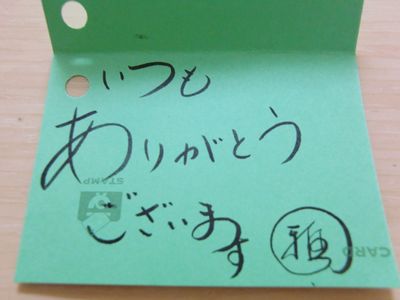 いつも
ありがとう
STAMP
ございます
雅
CARD